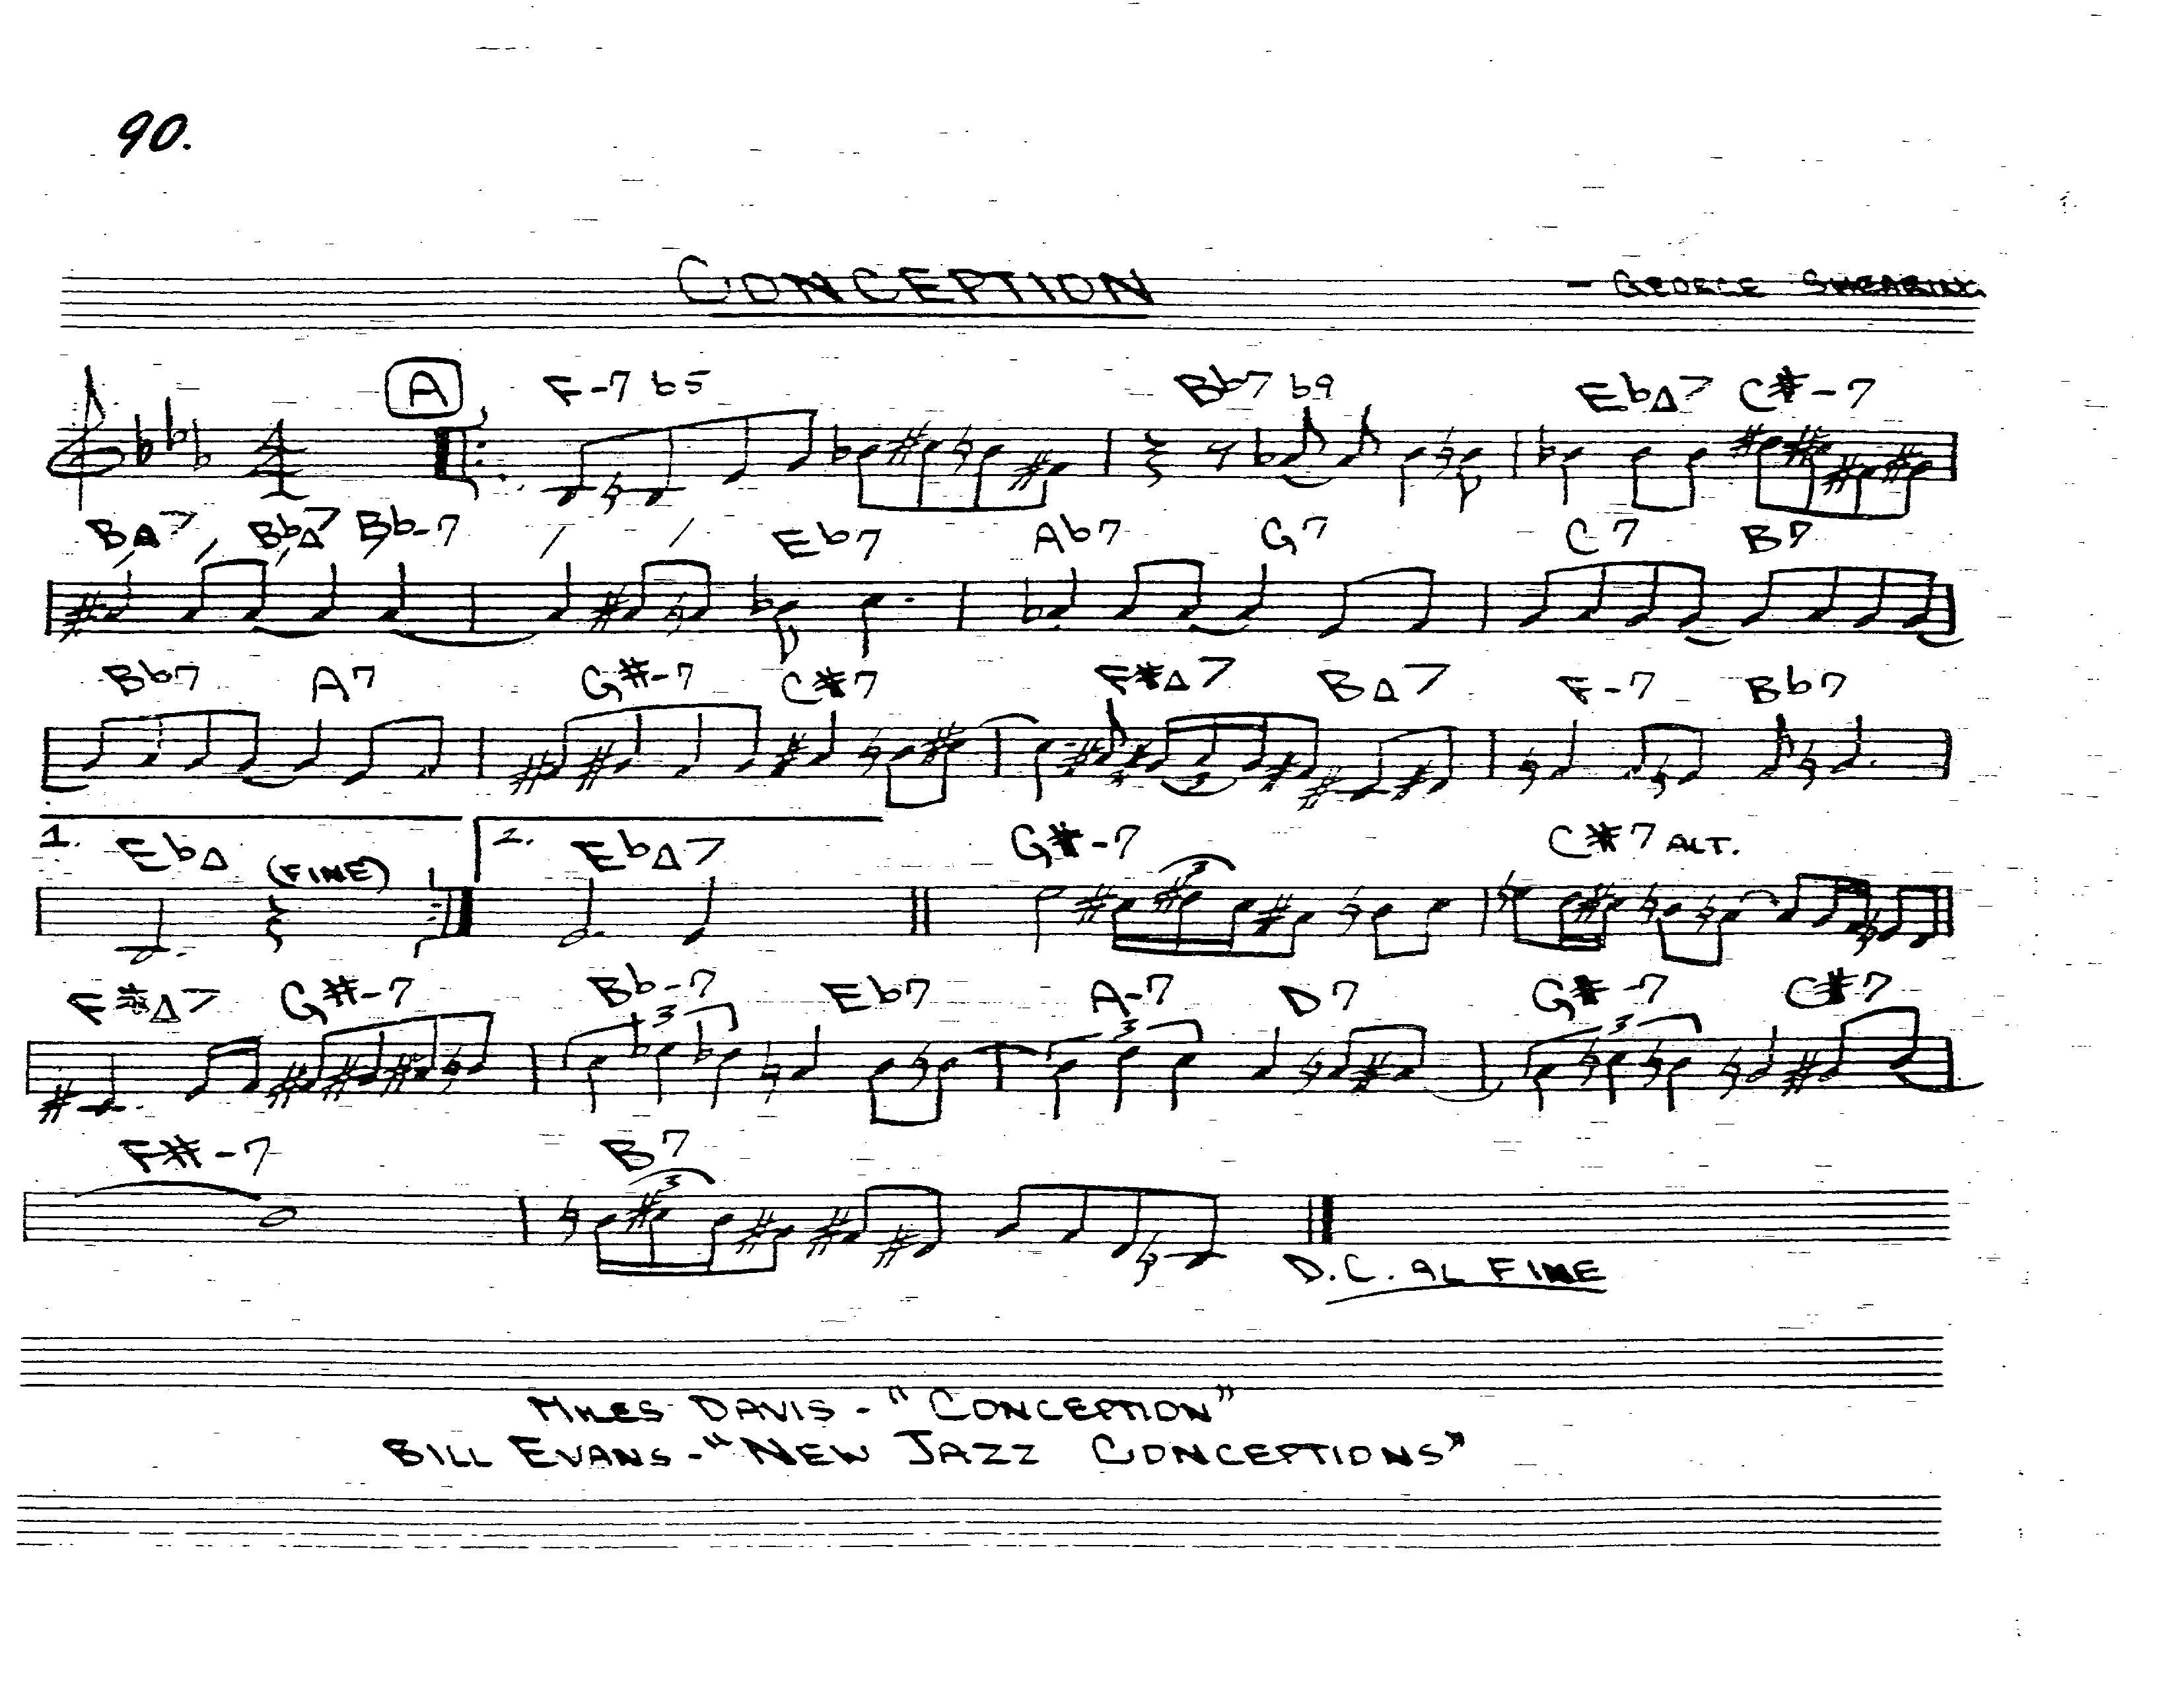 90.
CONCEPTION
- GEORGE SHEARING
A F-7 b5 Bb7 b9 EbΔ7 C#-7
BΔ7 BbΔ7 Bb-7 Eb7 Ab7 G7 C7 B7
Bb7 A7 G#-7 C#7 F#Δ7 BΔ7 F-7 Bb7
3 3
1. EbΔ (FINE) 2. EbΔ7 G#-7 C#7 ALT.
3
F#Δ7 G#-7 Bb-7 Eb7 A-7 D7 G#-7 C#7
3 3 3
F#-7 B7
3
D.C. AL FINE
MILES DAVIS - "CONCEPTION"
BILL EVANS - "NEW JAZZ CONCEPTIONS"